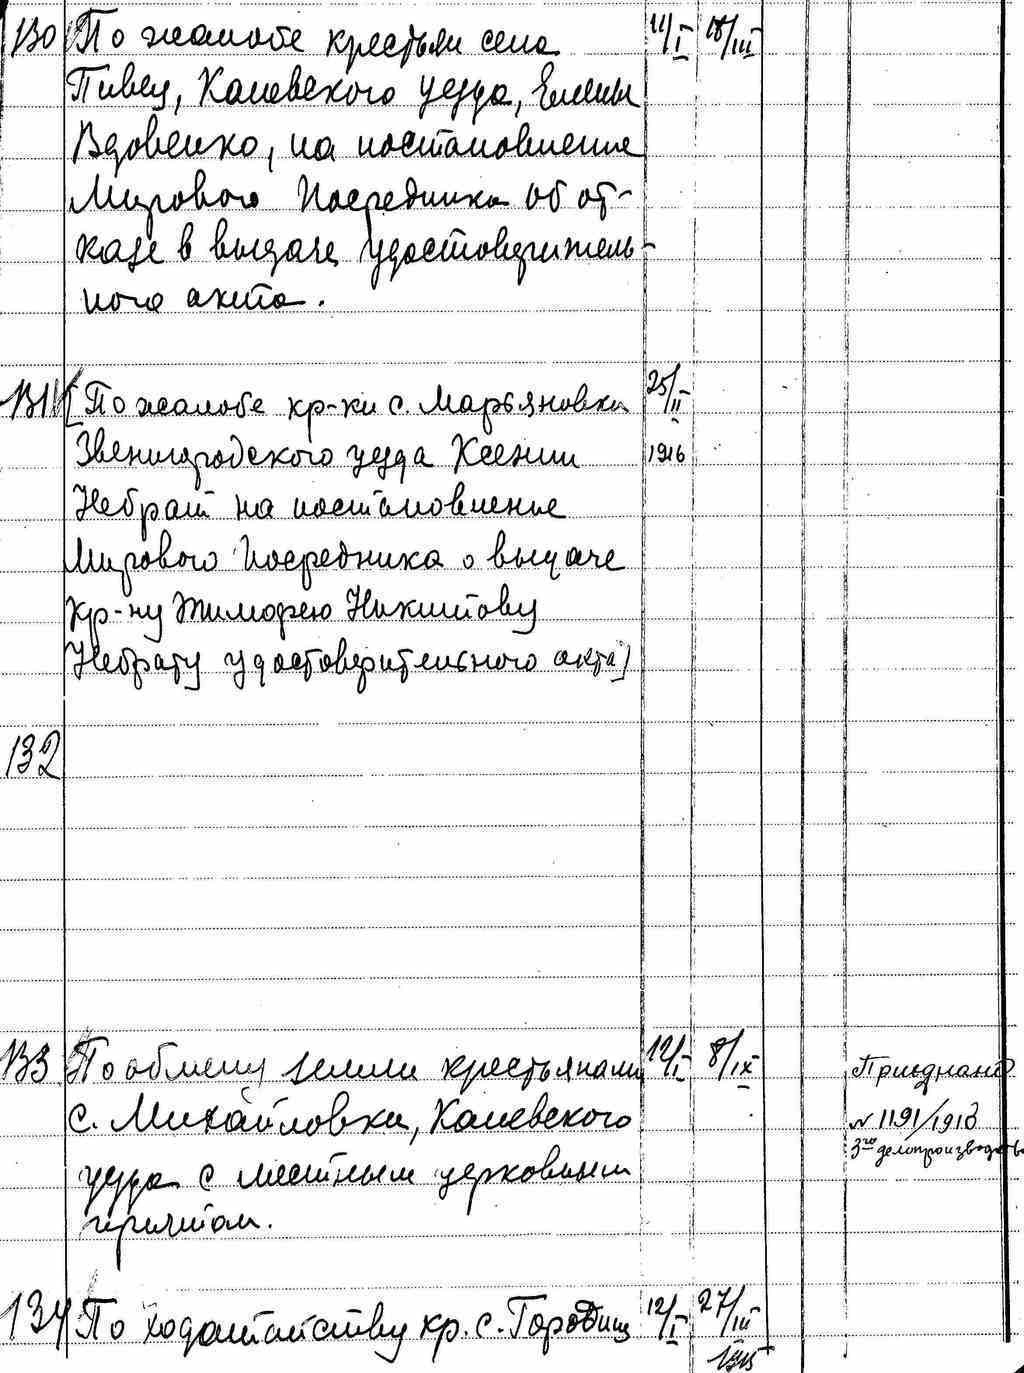 130 По жалобе крестьян села 11/I 18/III
Пивец, Каневского уезда, Елены
Вдовенко, на постановление
Мирового Посредника об от-
казе в выдаче удостоверитель-
ного акта.
131 [По жалобе кр-ки с. Марьяновки 25/II
Звенигородского уезда Ксении 1916
Небрат на постановление
Мирового Посредника о выдаче
кр-ну Тимофею Никитову
Небрату удостоверительного акта]
132
133 По обмену земли крестьянами 12/I 8/IX Приеднано
с. Михайловки, Каневского № 1191/1913
уезда с местным церковным 3го делопроизводства
причтом.
134 По ходатайству кр. с. Городищ 12/I 27/III
1915